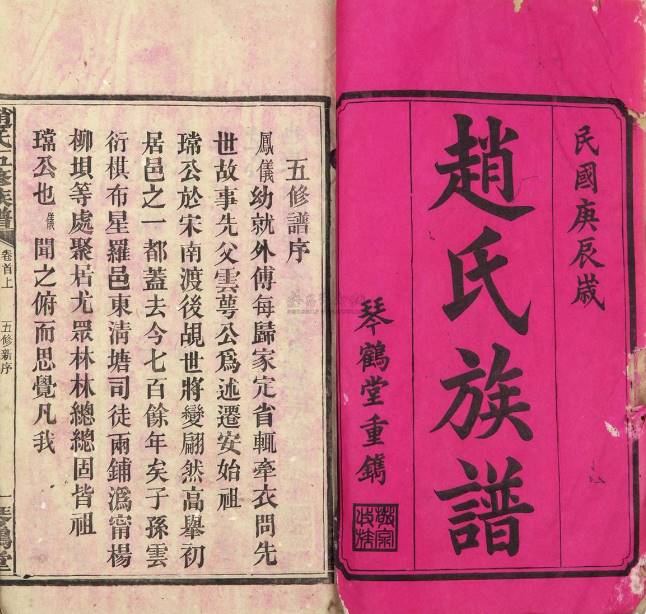 民國庚辰歲
趙氏族譜
琴鶴堂重鐫
敬宗收族
五修譜序
鳳儀幼就外傅每歸家定省輒牽衣問先
世故事先父雲萼公爲述遷安始祖
璫公於宋南渡後覘世將變翩然高舉初
居邑之一都蓋去今七百餘年矣子孫雲
衍棋布星羅邑東清塘司徒兩鋪溈甯楊
柳垻等處聚居尤眾林林總總固皆祖
璫公也儀聞之俯而思覺凡我
趙氏五修族譜
卷首上
五修新序
一
琴鶴堂